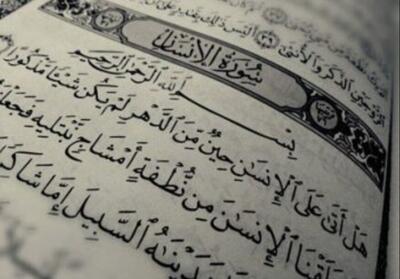 ٱلزَّوْجَيْنِ ٱلذَّكَرَ وَٱلْأُنثَىٰٓ ٣٩ أَلَيْسَ ذَٰلِكَ بِقَٰدِرٍ عَلَىٰٓ
سُورَةُ الإِنسَانِ
بِسْمِ ٱللَّهِ ٱلرَّحْمَٰنِ ٱلرَّحِيمِ
هَلْ أَتَىٰ عَلَى ٱلْإِنسَٰنِ حِينٌ مِّنَ ٱلدَّهْرِ لَمْ يَكُن شَيْـًٔا مَّذْكُورًا
خَلَقْنَا ٱلْإِنسَٰنَ مِن نُّطْفَةٍ أَمْشَاجٍ نَّبْتَلِيهِ فَجَعَلْنَٰ
دَيْنَٰهُ ٱلسَّبِيلَ إِمَّا شَاكِرًا